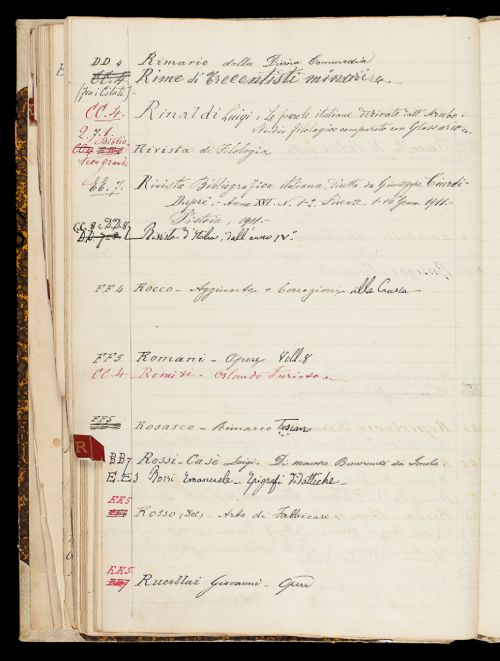 DD 4 Rimario della Divina Commedia
CC.4. Rime di Trecentisti minori
[fra i Citati]
CC.4. Rinaldi Luigi: Le parole italiane derivate dall'Arabo.
Studio filologico comparato con Glossario
2.7.1.
Biblio
Rivista di Filologia
teca grande
EE.7. Rivista Bibliografica italiana, diretta da Giuseppe Ciardi-
Dupré. - Anno XVI. N. 1-2. Firenze, 1-16 Genn. 1911.-
Pistoia, 1911.-
CC.8 e DD.8
DD.7-8 Rivista d'Italia, dall'anno IV.
FF4 Rocco - Aggiunte e Correzioni alla Crusca
FF5 Romani - Opere Voll. 8
CC.4 Romizi - Orlando Furioso
FF5
Rosasco - Rimario Toscano
R
BB7 Rossi-Casè Luigi - Di maestro Benvenuto da Imola
E.E3 Rossi Emanuele - Epigrafi Didattiche -
EE5
Rosso (Del) - Arte di Fabbricare.
EE5.
BB7 Rucellai Giovanni - Opere